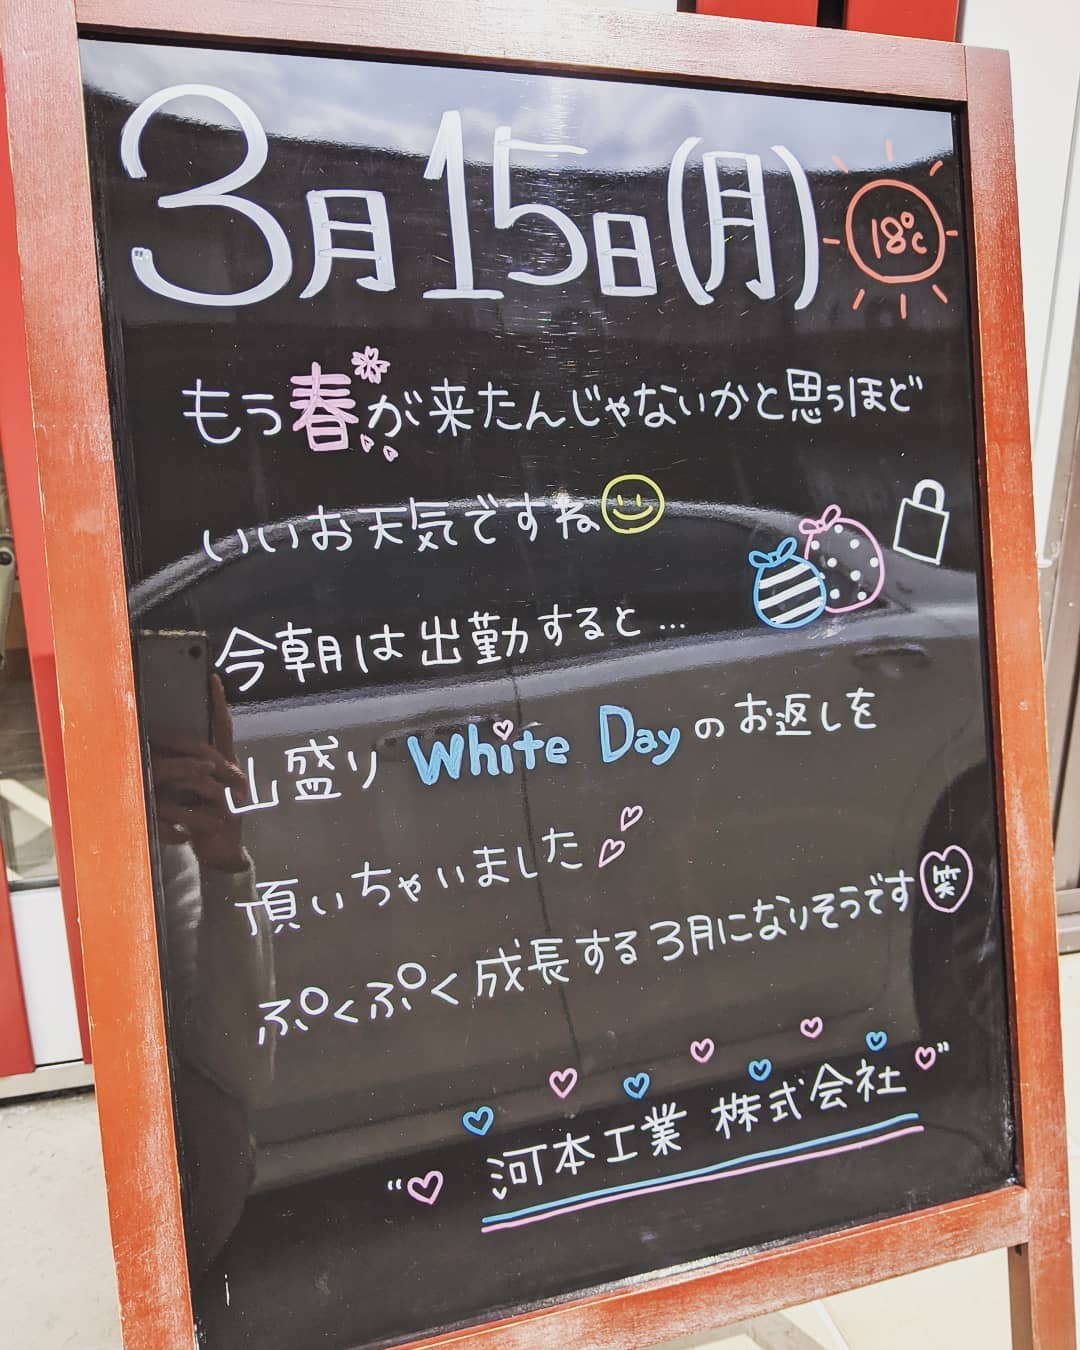 3月15日(月) 18℃
もう春が来たんじゃないかと思うほど
いいお天気ですね
今朝は出勤すると…
山盛り White Dayのお返しを
頂いちゃいました
ぷくぷく成長する3月になりそうです 笑
“河本工業 株式会社”